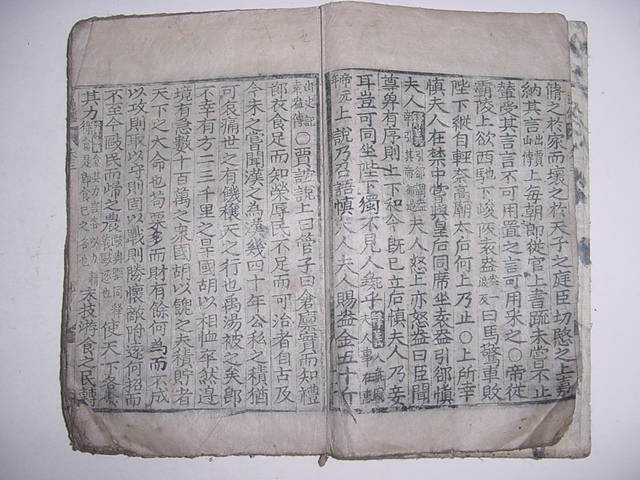 脩之於家而壞之於天子之庭臣切愍之上嘉
納其言出賈山傳上每朝郎從官上書疏未嘗不止
輦受其言言不可用置之言可用采之○帝從
霸陵上欲西馳下峻阪袁盎曰馬驚車敗
陛下縱自輕奈高廟太后何上乃止○上所幸
慎夫人在禁中嘗與皇后同席坐袁盎引郤慎
夫人夫人怒上亦怒盎曰臣聞
尊卑有序則上下和今既已立后慎夫人乃妾
耳豈可同坐陛下獨不見人彘乎
上說乃召語慎夫人夫人賜盎金五十斤
出史記袁盎傳○賈誼說上曰管子曰倉廩實而知禮
節衣食足而知榮辱民不足而可治者自古及
今未之嘗聞漢之為漢幾四十年公私之積猶
可哀痛世之有饑穰天之行也禹湯被之矣即
不幸有方二三千里之旱國胡以相恤卒然邊
境有急數十百萬之衆國胡以餽之夫積貯者
天下之大命也苟粟多而財有餘何為而不成
以攻則取以守則固以戰則勝懷敵附遠何招而
不至今敺民而歸之農使天下各食
其力末技游食之民轉